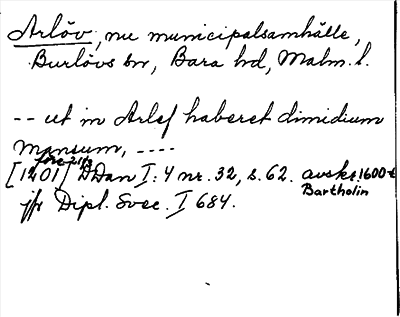 Arlöv, nu municipalsamhälle,
Burlövs sn, Bara hd, Malm. l.
-- ut in Arlef haberet dimidium
mansum, ----
före 21/3
[1201] DDan I: 4 nr. 32, s. 62. avskr. 1600-t
Bartholin
jfr Dipl. Svec. I 684.